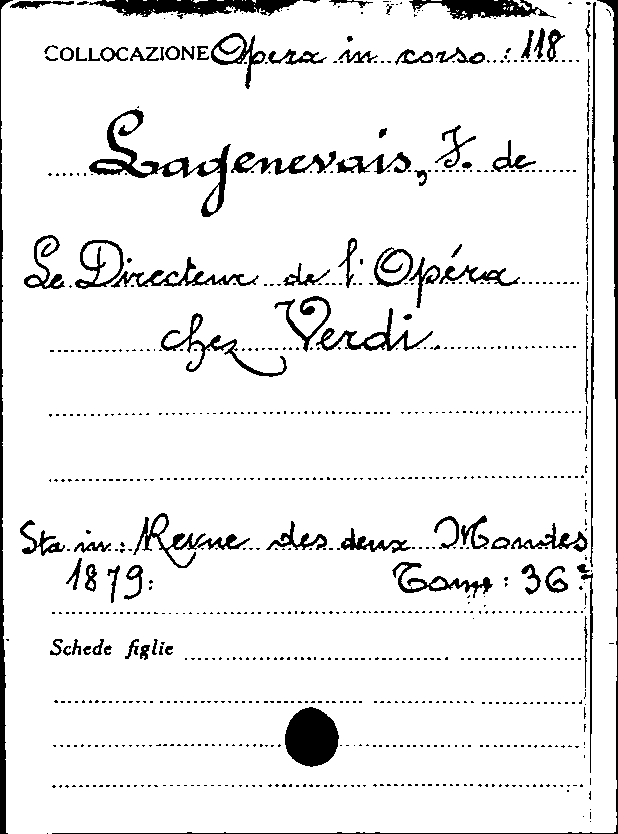 COLLOCAZIONE Opera in corso : 118
Lagenevais, F. de
Le Directeur de l'Opéra
chez Verdi.
Sta in : Revue des deux Mondes
1879: Tome : 36º
Schede figlie